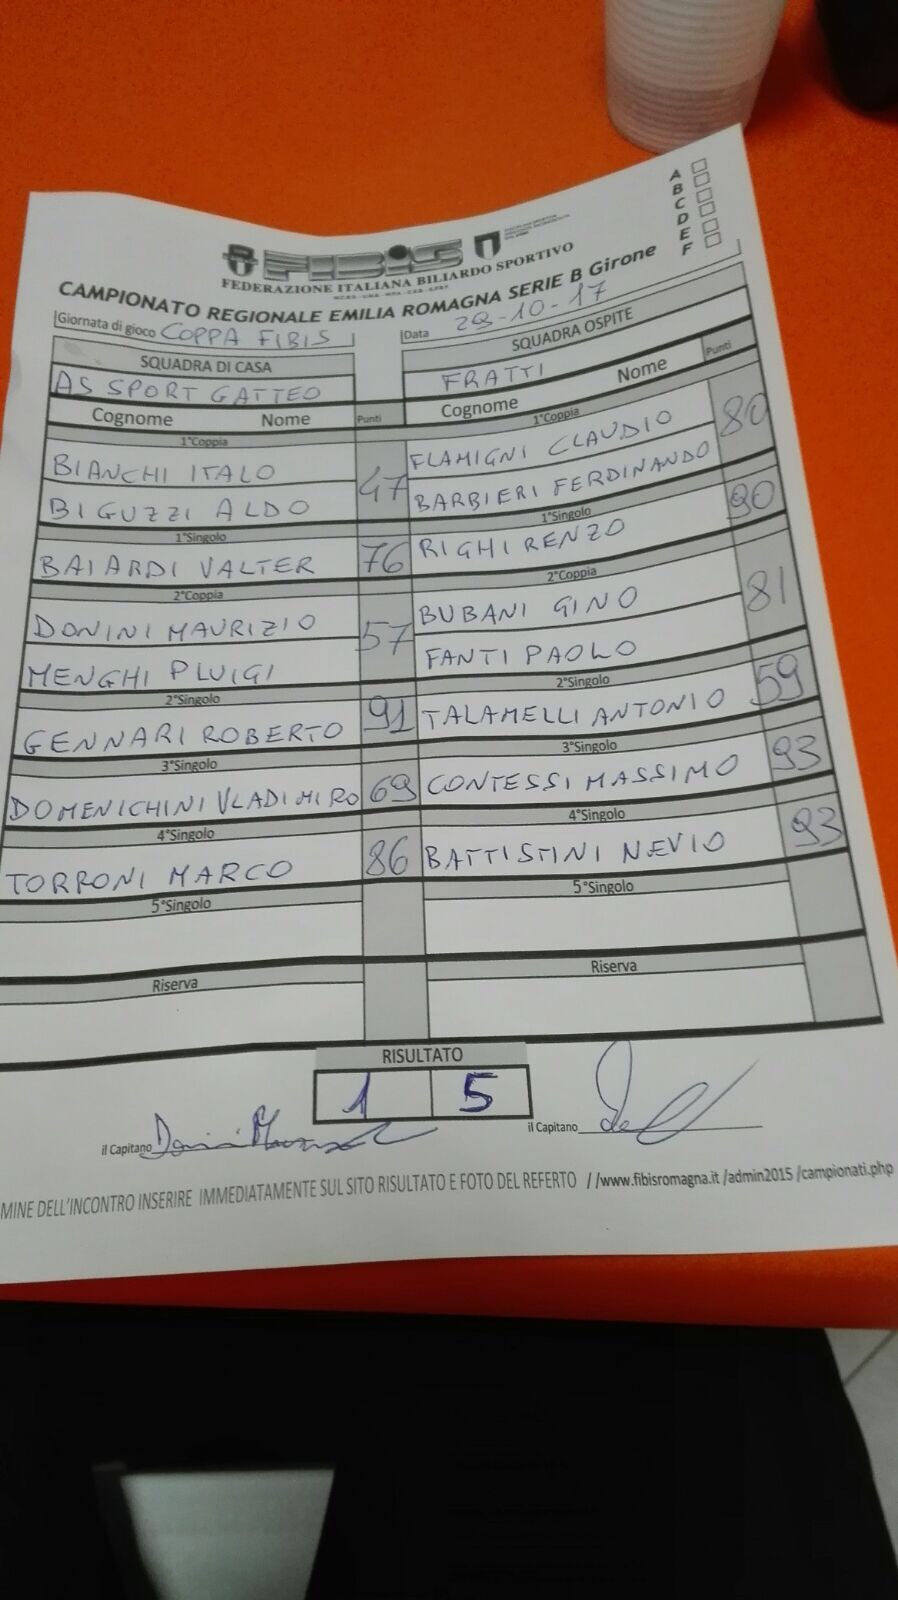 A
B
C
D
E
F
FIBIS
FEDERAZIONE ITALIANA BILIARDO SPORTIVO
CAMPIONATO REGIONALE EMILIA ROMAGNA SERIE B Girone
Giornata di gioco COPPA FIBIS
Data 29-10-17
SQUADRA DI CASA
SQUADRA OSPITE
AS SPORT GATTEO
FRATTI
Cognome Nome Punti
Cognome Nome Punti
1°Coppia
1°Coppia
BIANCHI ITALO
BIGUZZI ALDO
47
FLAMIGNI CLAUDIO
BARBIERI FERDINANDO
80
1°Singolo
1°Singolo
BAIARDI VALTER 76
RIGHI RENZO 90
2°Coppia
2°Coppia
DONINI MAURIZIO
MENGHI PLUIGI
57
BUBANI GINO
FANTI PAOLO
81
2°Singolo
2°Singolo
GENNARI ROBERTO 91
TALAMELLI ANTONIO 59
3°Singolo
3°Singolo
DOMENICHINI VLADIMIRO 69
CONTESSI MASSIMO 93
4°Singolo
4°Singolo
TORRONI MARCO 86
BATTISTINI NEVIO 93
5°Singolo
5°Singolo
Riserva
Riserva
RISULTATO
1 5
il Capitano
il Capitano
MINE DELL'INCONTRO INSERIRE IMMEDIATAMENTE SUL SITO RISULTATO E FOTO DEL REFERTO //www.fibisromagna.it /admin2015 /campionati.php